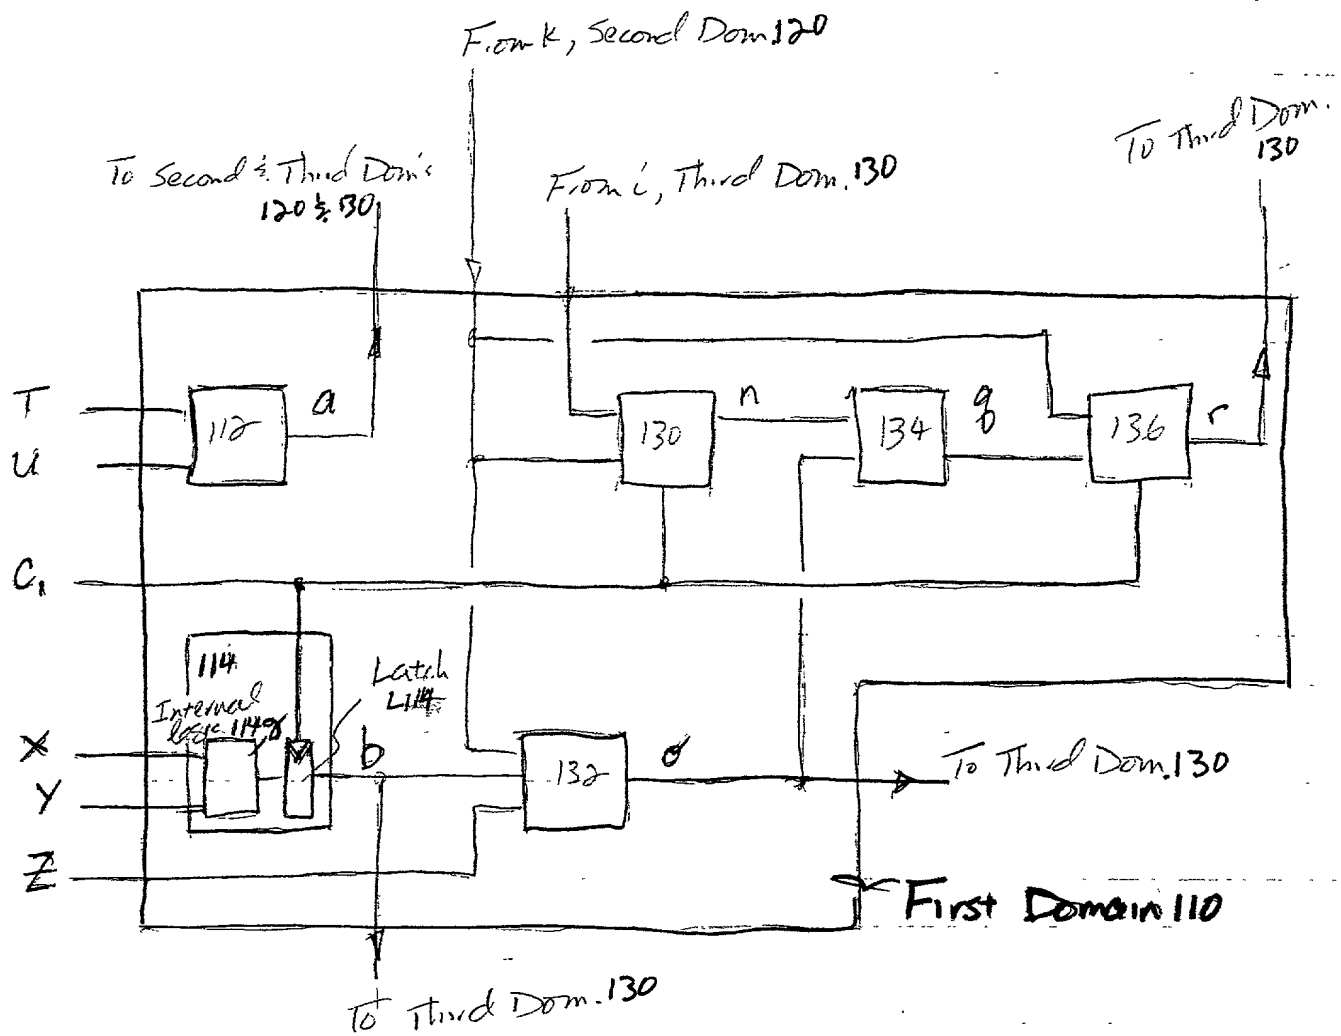 From k, Second Dom. 120
To Third Dom.
130
To Second & Third Dom's
120 & 130
From i, Third Dom. 130
T
U
112
a
130
n
134
q
136
r
C1
114
Internal
logic 114g
Latch
L114
X
Y
b
132
o
To Third Dom. 130
Z
First Domain 110
To Third Dom. 130